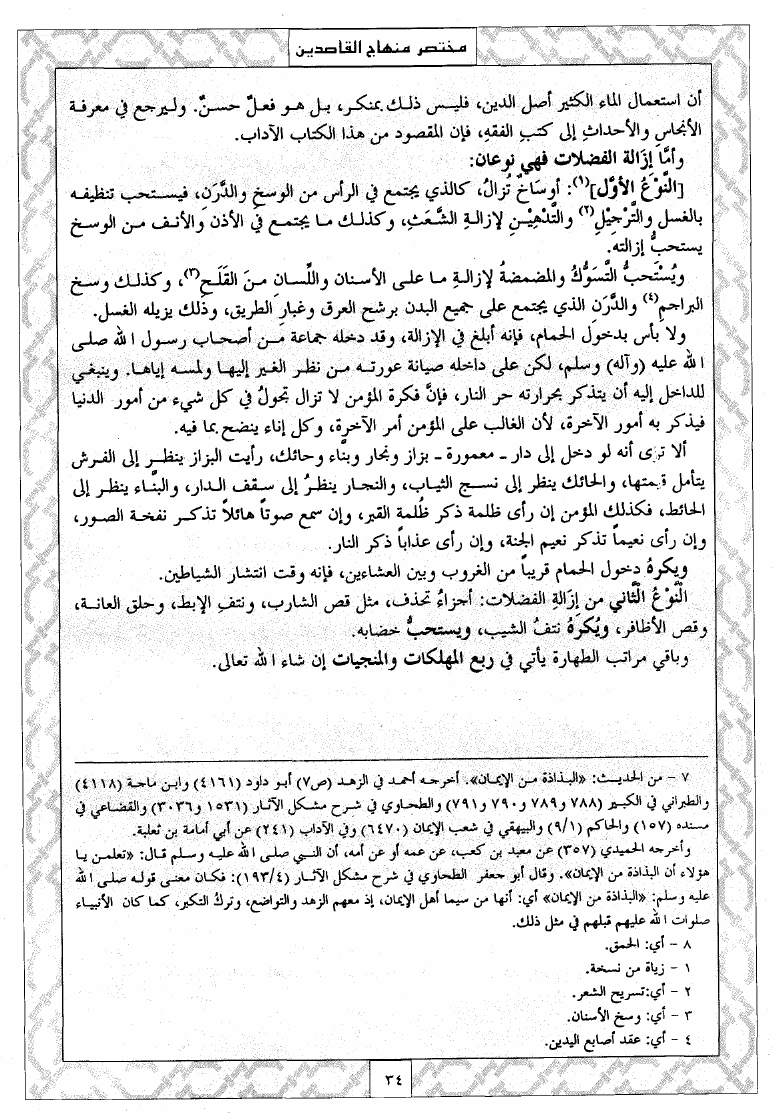 مختصر منهاج القاصدين
أن استعمال الماء الكثير أصل الدين، فليس ذلك بمنكر، بل هو فعلٌ حسنٌ. وليرجع في معرفة
الأنجاسِ والأحداثِ إلى كتبِ الفقهِ، فإن المقصود من هذا الكتاب الآداب.
وأمَّا إزالة الفضلات فهي نوعان:
[النَّوْعُ الأوَّل](١): أوسَاخٌ تُزالُ، كالذي يجتمع في الرأس من الوسخِ والدَّرَنِ، فيستحب تنظيفه
بالغسل والتَّرْجِيْلِ(٢) والتَّدْهِيْنِ لإزالةِ الشَّعَثِ، وكذلك ما يجتمع في الأذن والأنف من الوسخ
يستحبُّ إزالته.
ويُسْتَحبُّ التَّسَوُّكُ والمضمضةُ لإزالةِ ما على الأسنان واللِّسان منَ القَلَحِ(٣)، وكذلك وسخ
البراجمِ(٤) والدَّرَن الذي يجتمع على جميع البدن برشح العرق وغبارِ الطريق، وذلك يزيله الغسل.
ولا بأس بدخول الحمام، فإنه أبلغ في الإزالة، وقد دخله جماعة من أصحاب رسول الله صلى
الله عليه (وآله) وسلم، لكن على داخله صيانة عورته من نظر الغير إليها ولمسه إياها. وينبغي
للداخل إليه أن يتذكر بحرارته حر النار، فإنَّ فكرة المؤمن لا تزال تجولُ في كل شيء من أمور الدنيا
فيذكر به أمور الآخرة، لأن الغالب على المؤمن أمر الآخرة، وكل إناء ينضح بما فيه.
ألا ترى أنه لو دخل إلى دار - معمورة - بزاز ونجار وبنَّاء وحائك، رأيت البزاز ينظر إلى الفرش
يتأمل قيمتها، والحائك ينظر إلى نسج الثياب، والنجار ينظرُ إلى سقف الدار، والبنَّاء ينظر إلى
الحائط، فكذلك المؤمن إن رأى ظلمة ذكر ظُلمة القبر، وإن سمع صوتاً هائلاً تذكر نفخة الصور،
وإن رأى نعيماً تذكر نعيم الجنة، وإن رأى عذاباً ذكر النار.
ويكرهُ دخول الحمام قريباً من الغروب وبين العشاءين، فإنه وقت انتشار الشياطين.
النَّوْعُ الثَّاني من إزالةِ الفضلات: أجزاءُ تحذف، مثل قص الشارب، ونتفِ الإبط، وحلق العانة،
وقص الأظافر، ويُكرَهُ نتفُ الشيب، ويستحبُّ خضابه.
وباقي مراتب الطهارة يأتي في ربع المهلكات والمنجيات إن شاء الله تعالى.
٧ - من الحديث: «البذاذة من الإيمان». أخرجه أحمد في الزهد (ص٧) أبو داود (٤١٦١) وابن ماجة (٤١١٨)
والطبراني في الكبير (٧٨٨ و٧٨٩ و٧٩٠ و٧٩١) والطحاوي في شرح مشكل الآثار (١٥٣١ و٣٠٣٦) والقضاعي في
مسنده (١٥٧) والحاكم (٩/١) والبيهقي في شعب الإيمان (٦٤٧٠) وفي الآداب (٢٤١) عن أبي أمامة بن ثعلبة.
وأخرجه الحميدي (٣٥٧) عن معبد بن كعب، عن عمه أو عن أمه، أن النبي صلى الله عليه وسلم قال: «تعلمن يا
هؤلاء أن البذاذة من الإيمان». وقال أبو جعفر الطحاوي في شرح مشكل الآثار (١٩٣/٤): فكان معنى قوله صلى الله
عليه وسلم: «البذاذة من الإيمان» أي: أنها من سيما أهل الإيمان، إذ معهم الزهد والتواضع، وتركُ التكبر، كما كان الأنبياء
صلوات الله عليهم قبلهم في مثل ذلك.
٨ - أي: الحمق.
١ - زياة من نسخة.
٢ - أي:تسريح الشعر.
٣ - أي: وسخ الأسنان.
٤ - أي: عقد أصابع اليدين.
٣٤